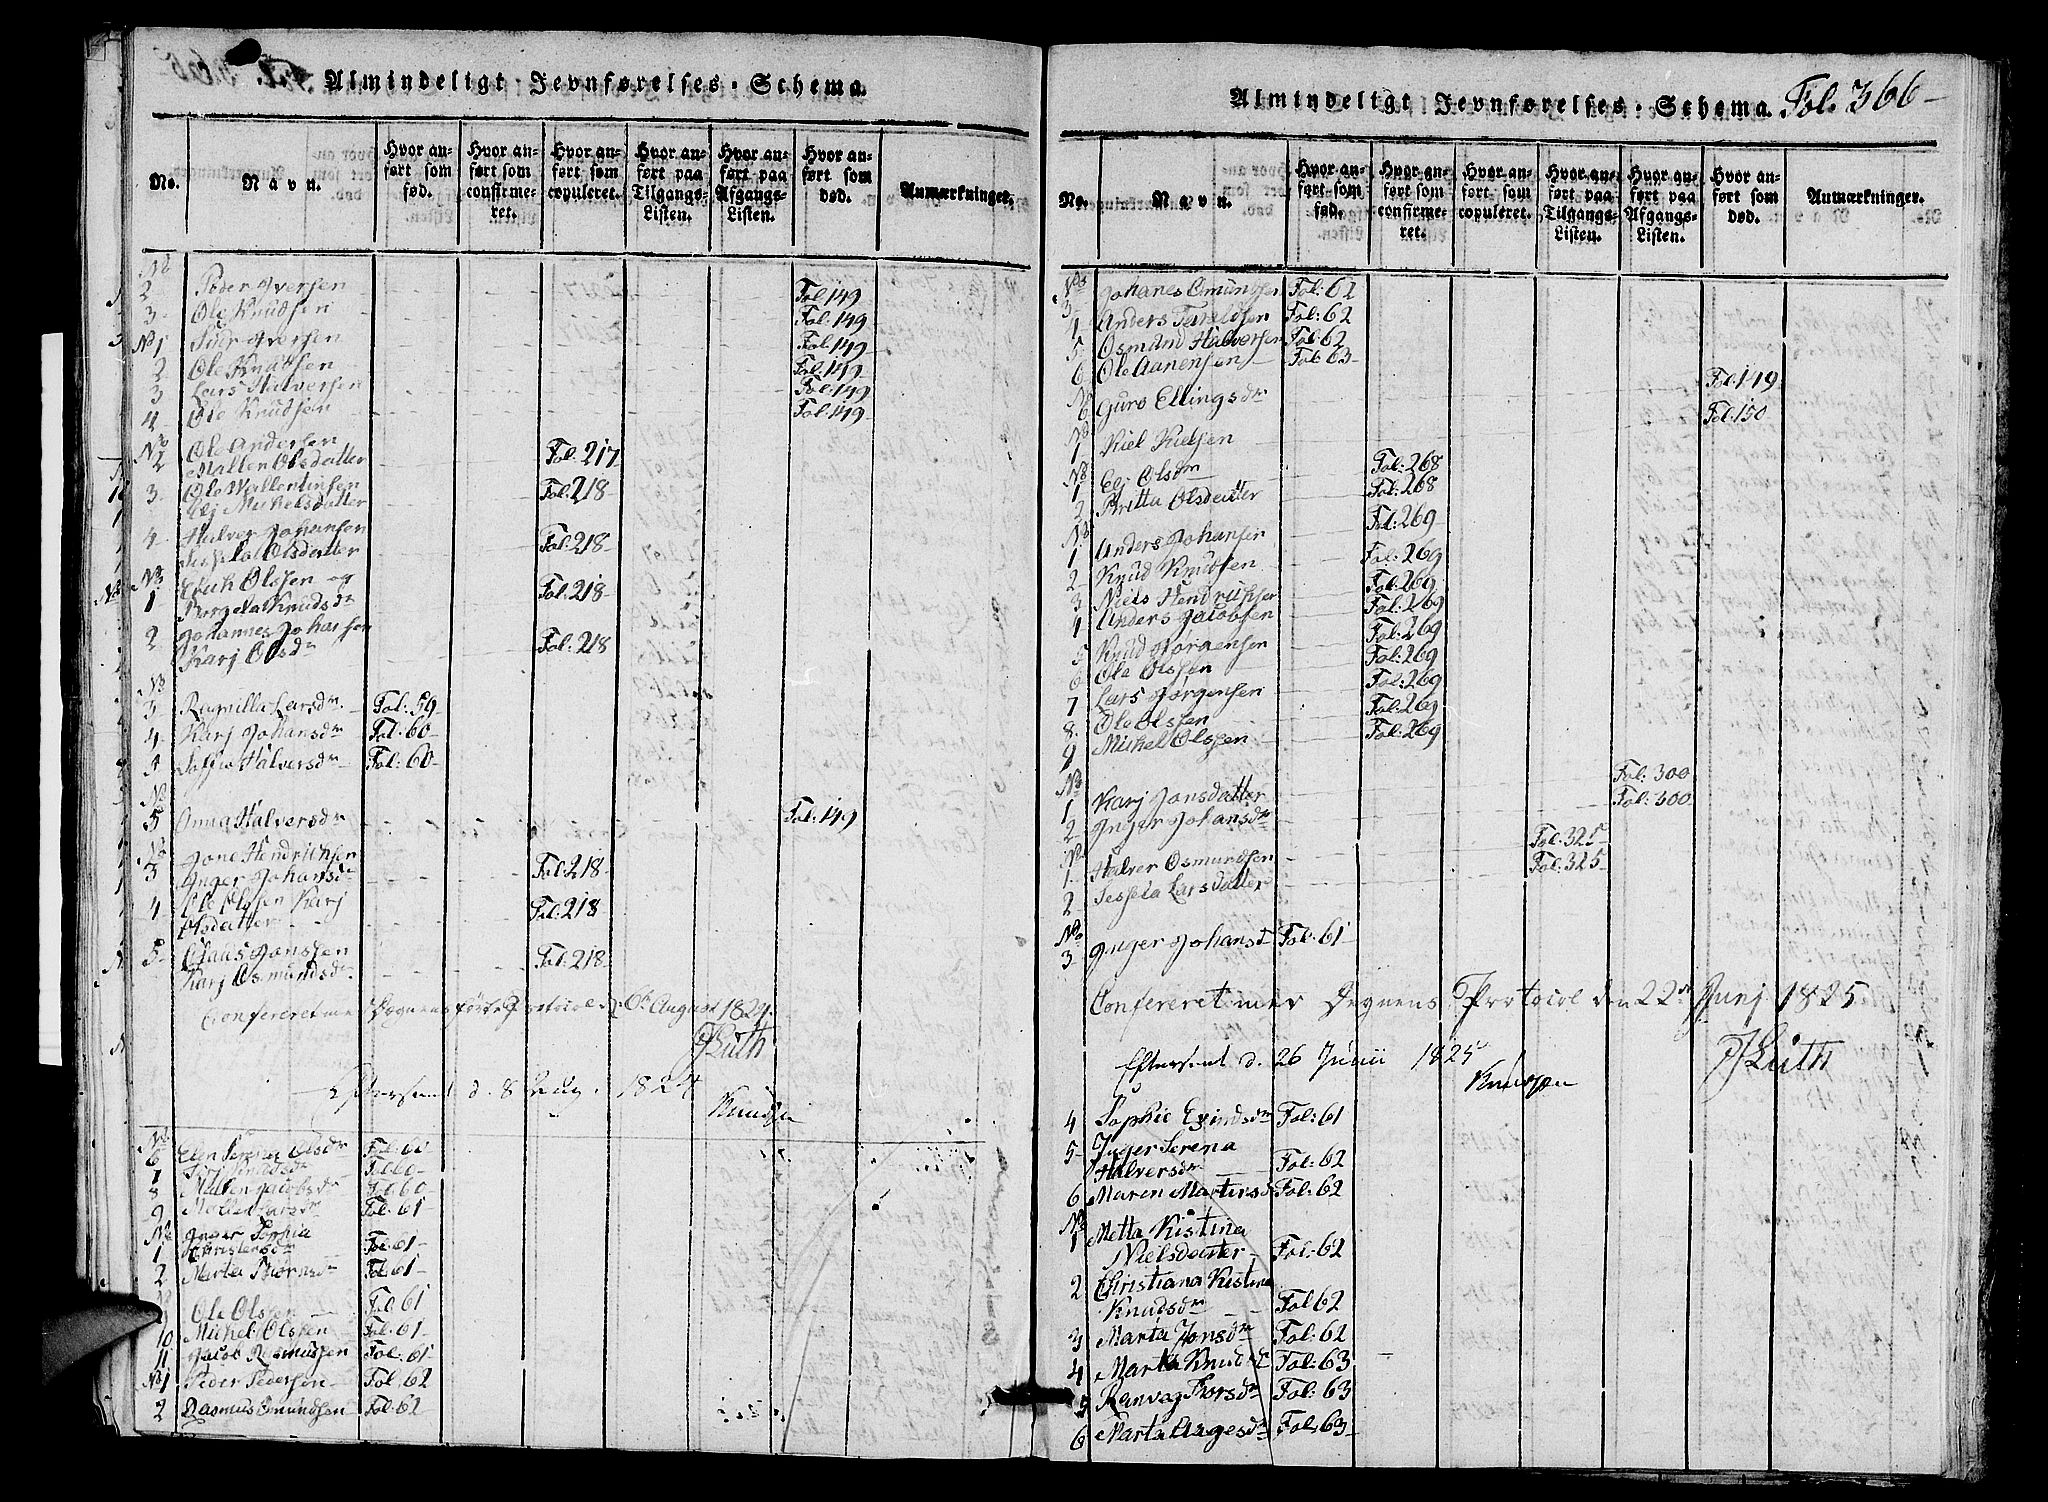 Almindeligt Jevnførelses-Schema.
No.
Navn.
Hvor anført som fød.
Hvor anført som confirmeret.
Hvor anført som copuleret.
Hvor anført paa Tilgangs-Listen.
Hvor anført paa Afgangs-Listen.
Hvor anført som død.
Anmærkninger.
No
2 Peder Iversen Fol 149
3 Ole Knudsen Fol: 149
No 1 Peder Iversen Fol: 149
2 Ole Knudsen Fol: 149
3 Lars Halversen Fol: 149
4 Ole Knudsen Fol: 149
No Ole Andersen
2 Mallen Olsdatter Fol: 217
3 Ole Wallentinsen Fol: 218
Elj Michelsdatter
4 Halver Johansen Fol: 218
Sessela Olsdatter
No Olsen og
1 Knudsdr Fol: 218
2 Johannes Johansen Fol: 218
Karj Olsdr
No
3 Ragnilla Larsdr. Fol: 59
4 Karj Johansdr Fol: 60
Halversdr Fol: 60
No
5 Anna Halversdr Fol: 149
No Jone Hendrichsen
3 Inger Johansdr Fol: 218
4 Ole Olsen Karj Fol: 218
Olsdatter
5 Claus Jonssen Fol: 218
Karj Osmundsdr.
Confereret med Degnens førte Protocol d. 6te August 1824.
J Lüth
Eftersent d. 8 1824
Knudsen
No
6 Elen Serena Olsdr Fol: 60
7 Fol 60
8 Mallen Jacobsdr Fol: 60
9 Larsdr Fol: 61
No Inger Sophia
1 Christensdr Fol: 61
2 Marta Fol: 61
Ole Olsen Fol: 61
10 Michel Olsen Fol: 61
11 Jacob Rasmussen Fol: 61
No 1 Peder Pedersen Fol: 62
2 Rasmus Omundsen Fol: 62
Almindeligt Jevnførelses-Schema. Fol. 366
No.
Navn.
Hvor anført som fød.
Hvor anført som confirmeret.
Hvor anført som copuleret.
Hvor anført paa Tilgangs-Listen.
Hvor anført paa Afgangs-Listen.
Hvor anført som død.
Anmærkninger.
No
3 Johanes Omundsen Fol: 62
4 Anders Fol: 62
5 Osmund Halversen Fol: 62
6 Ole Aanensen Fol: 63
No
6 Guro Ellingsdr Fol: 149
No
1 Kiel Kielsen Fol: 150
No
1 Elj Olsdr Fol: 268
2 Britta Olsdatter Fol: 268
No
1 Anders Johansen Fol: 269
2 Knud Knudsen Fol: 269
3 Niels Hendrichsen Fol: 269
4 Anders Jacobsen Fol: 269
5 Knud Jørgensen Fol: 269
6 Ole Olssen Fol: 269
7 Lars Jørgensen Fol: 269
8 Ole Olssen Fol: 269
9 Michel Olssen Fol: 269
No
1 Karj Jonsdatter Fol: 300
2 Inger Johansdr Fol: 300
No
1 Halver Osmundsen Fol: 325
2 Sessela Larsdatter Fol: 325
No
3 Inger Johansd Fol: 61
Confereret med Degnens Protocol den 22de Junj 1825
J Lüth
Eftersent d. 26 Junii 1825
Knudsen
4 Sophie Fol: 61
5 Inger Serena
Halversdr Fol: 62
6 Maren Martinsd Fol: 62
No
1 Metta Kistina
Nielsdatter Fol: 62
2 Christiana Kistina
Knudsdr Fol 62
3 Marta Jonsdr Fol: 62
4 Marta Knudsd Fol: 63
5 Ranvag Torsdr Fol: 63
6 Marta Aagesdr Fol: 63